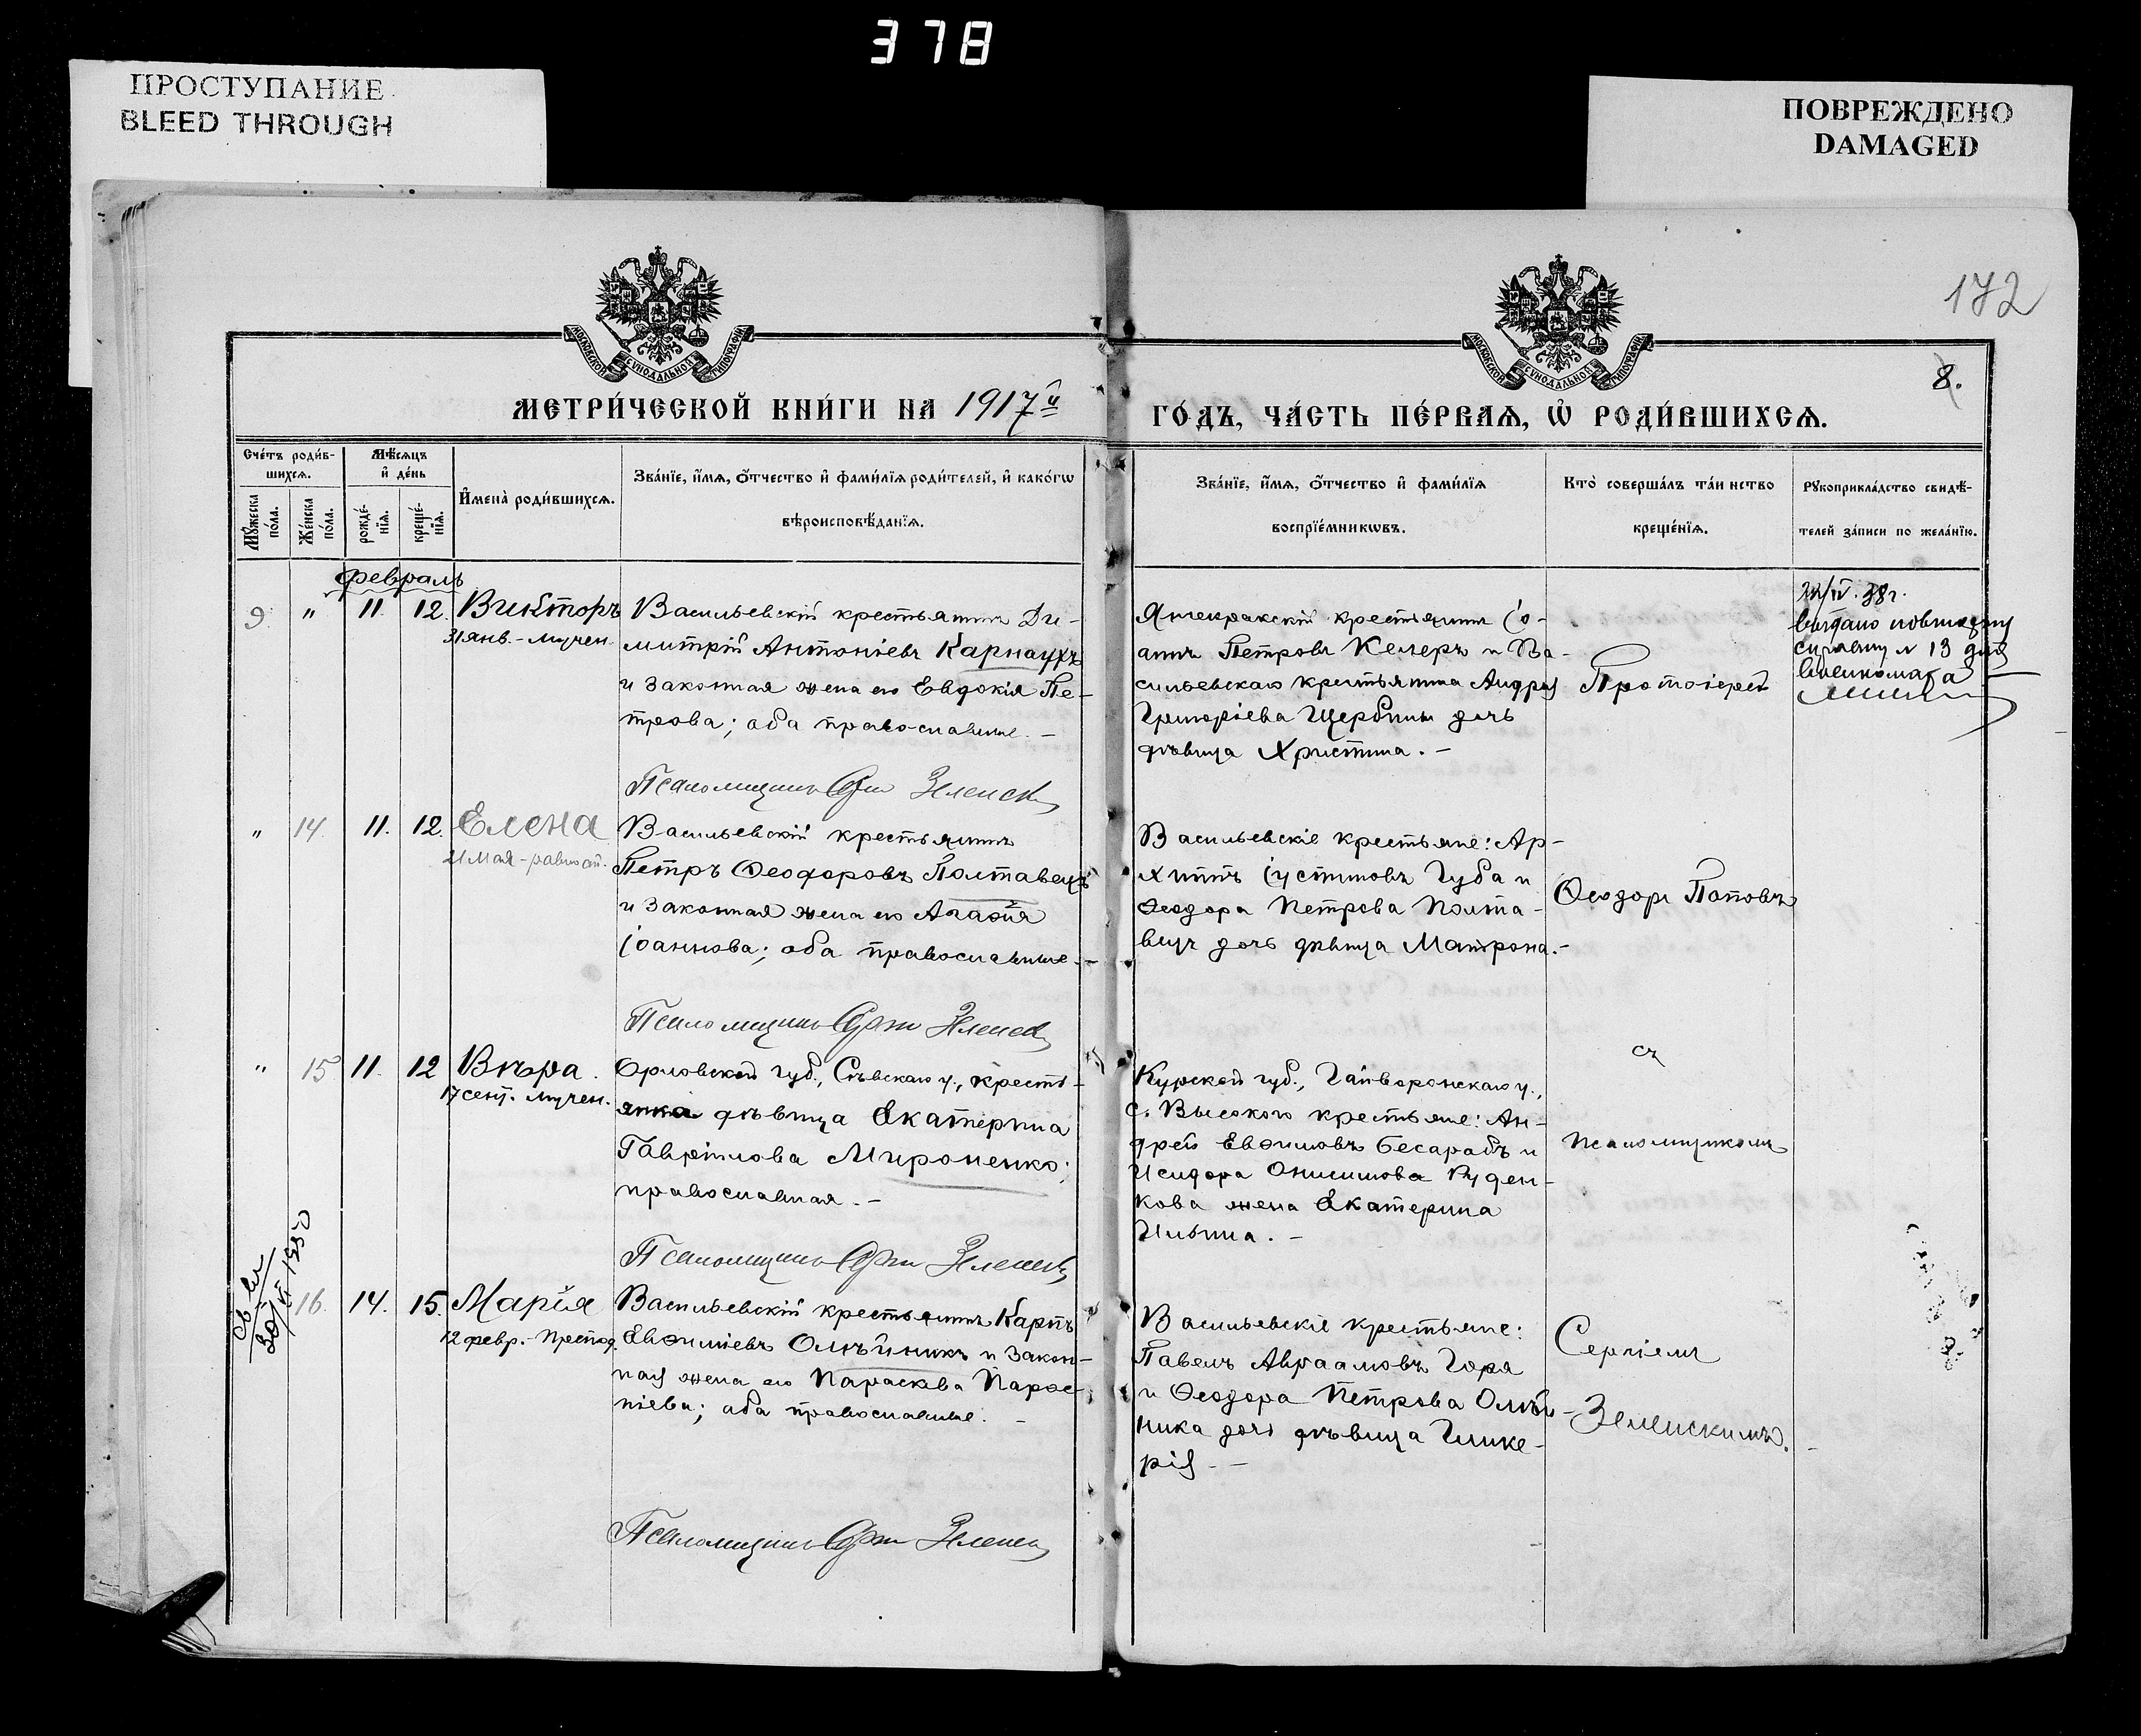 378
ПРОСТУПАНИЕ
BLEED THROUGH
ПОВРЕЖДЕНО
DAMAGED
172
8.
МОСКОВСКОЙ СѴНОДАЛЬНОЙ ТИПОГРАФІИ
МОСКОВСКОЙ СѴНОДАЛЬНОЙ ТИПОГРАФІИ
МЕТРИ́ЧЕСКОЙ КНИ́ГИ НА 1917й
ГО́ДЪ, ЧА́СТЬ ПЕ́РВАѦ, Ѡ҆ РОДИ́ВШИХСѦ.
Сче́тъ роди́в-
шихсѧ.
Мꙋ́жеска
по́ла.
Же́нска
по́ла.
Мѣ́сѧцъ
и҆ де́нь
рожде́-
нїѧ.
креще́-
нїѧ.
И҆мена̀ роди́вшихсѧ.
Зва́нїе, и҆́мѧ, ѻ҆́тчество и҆ фами́лїѧ роди́телей, и҆ како́гѡ
вѣроисповѣ́данїѧ.
Зва́нїе, и҆́мѧ, ѻ҆́тчество и҆ фами́лїѧ
воспрїе́мникѡвъ.
Кто̀ соверша́лъ та́инство
креще́нїѧ.
Рꙋкоприкла́дство свидѣ́-
телей за́писи по жела́нїю.
Февраль
9. " 11. 12. Викторъ
31 янв. - мучен.
Васильевскій крестьянинъ Ди-
митрій Антоніевъ Карнаухъ
и законная жена его Евдокія Пе-
трова; оба православные. -
Псаломщикъ Зеленск
крестьянинъ Іо-
аннъ Петровъ Келеръ и Ва-
сильевскаго крестьянина Андрея
Григоріева Щербины дочь
дѣвица Христина. -
Протоіерей
IV. 38г.
выдано повторну
справку N 13 для
военкомата
" 14. 11. 12. Елена
21 Мая - равноап.
Васильевскій крестьянинъ
Петръ Ѳеодоровъ Полтавецъ
и законная жена его Агаѳія
Іоаннова; оба православные. -
Псаломщикъ Зеленск
Васильевскіе крестьяне: Ар-
хиппъ Іустиновъ Губа и
Ѳеодора Петрова Полта-
вца дочь дѣвица Матрона. -
Ѳеодоръ Поповъ
" 15 11. 12 Вѣра.
17 сент. мучен.
Орловской губ., Сѣвскаго у., кресть-
янка дѣвица Екатерина
Гавріилова Мироненко;
православная. -
Псаломщикъ Зеленск
Курской губ., Грайворонскаго у.,
с. Высокого крестьяне: Ан-
дрей Евѳимовъ Бесарабъ и
Исидора Онисимова Руден-
кова жена Екатерина
Ильина. -
съ
псаломщикомъ
16. 14. 15. Марія
12 февр. - Препод.
Васильевскій крестьянинъ Карпъ
Евѳиміевъ Олѣйникъ и закон-
ная жена его Параскева
оба православные. -
Псаломщикъ Зеленск
Васильевскіе крестьяне:
Павелъ Авраамовъ Горя
и Ѳеодора Петрова Олѣй-
ника дочь дѣвица Глике-
рія. -
Сергіемъ
Зеленскимъ.